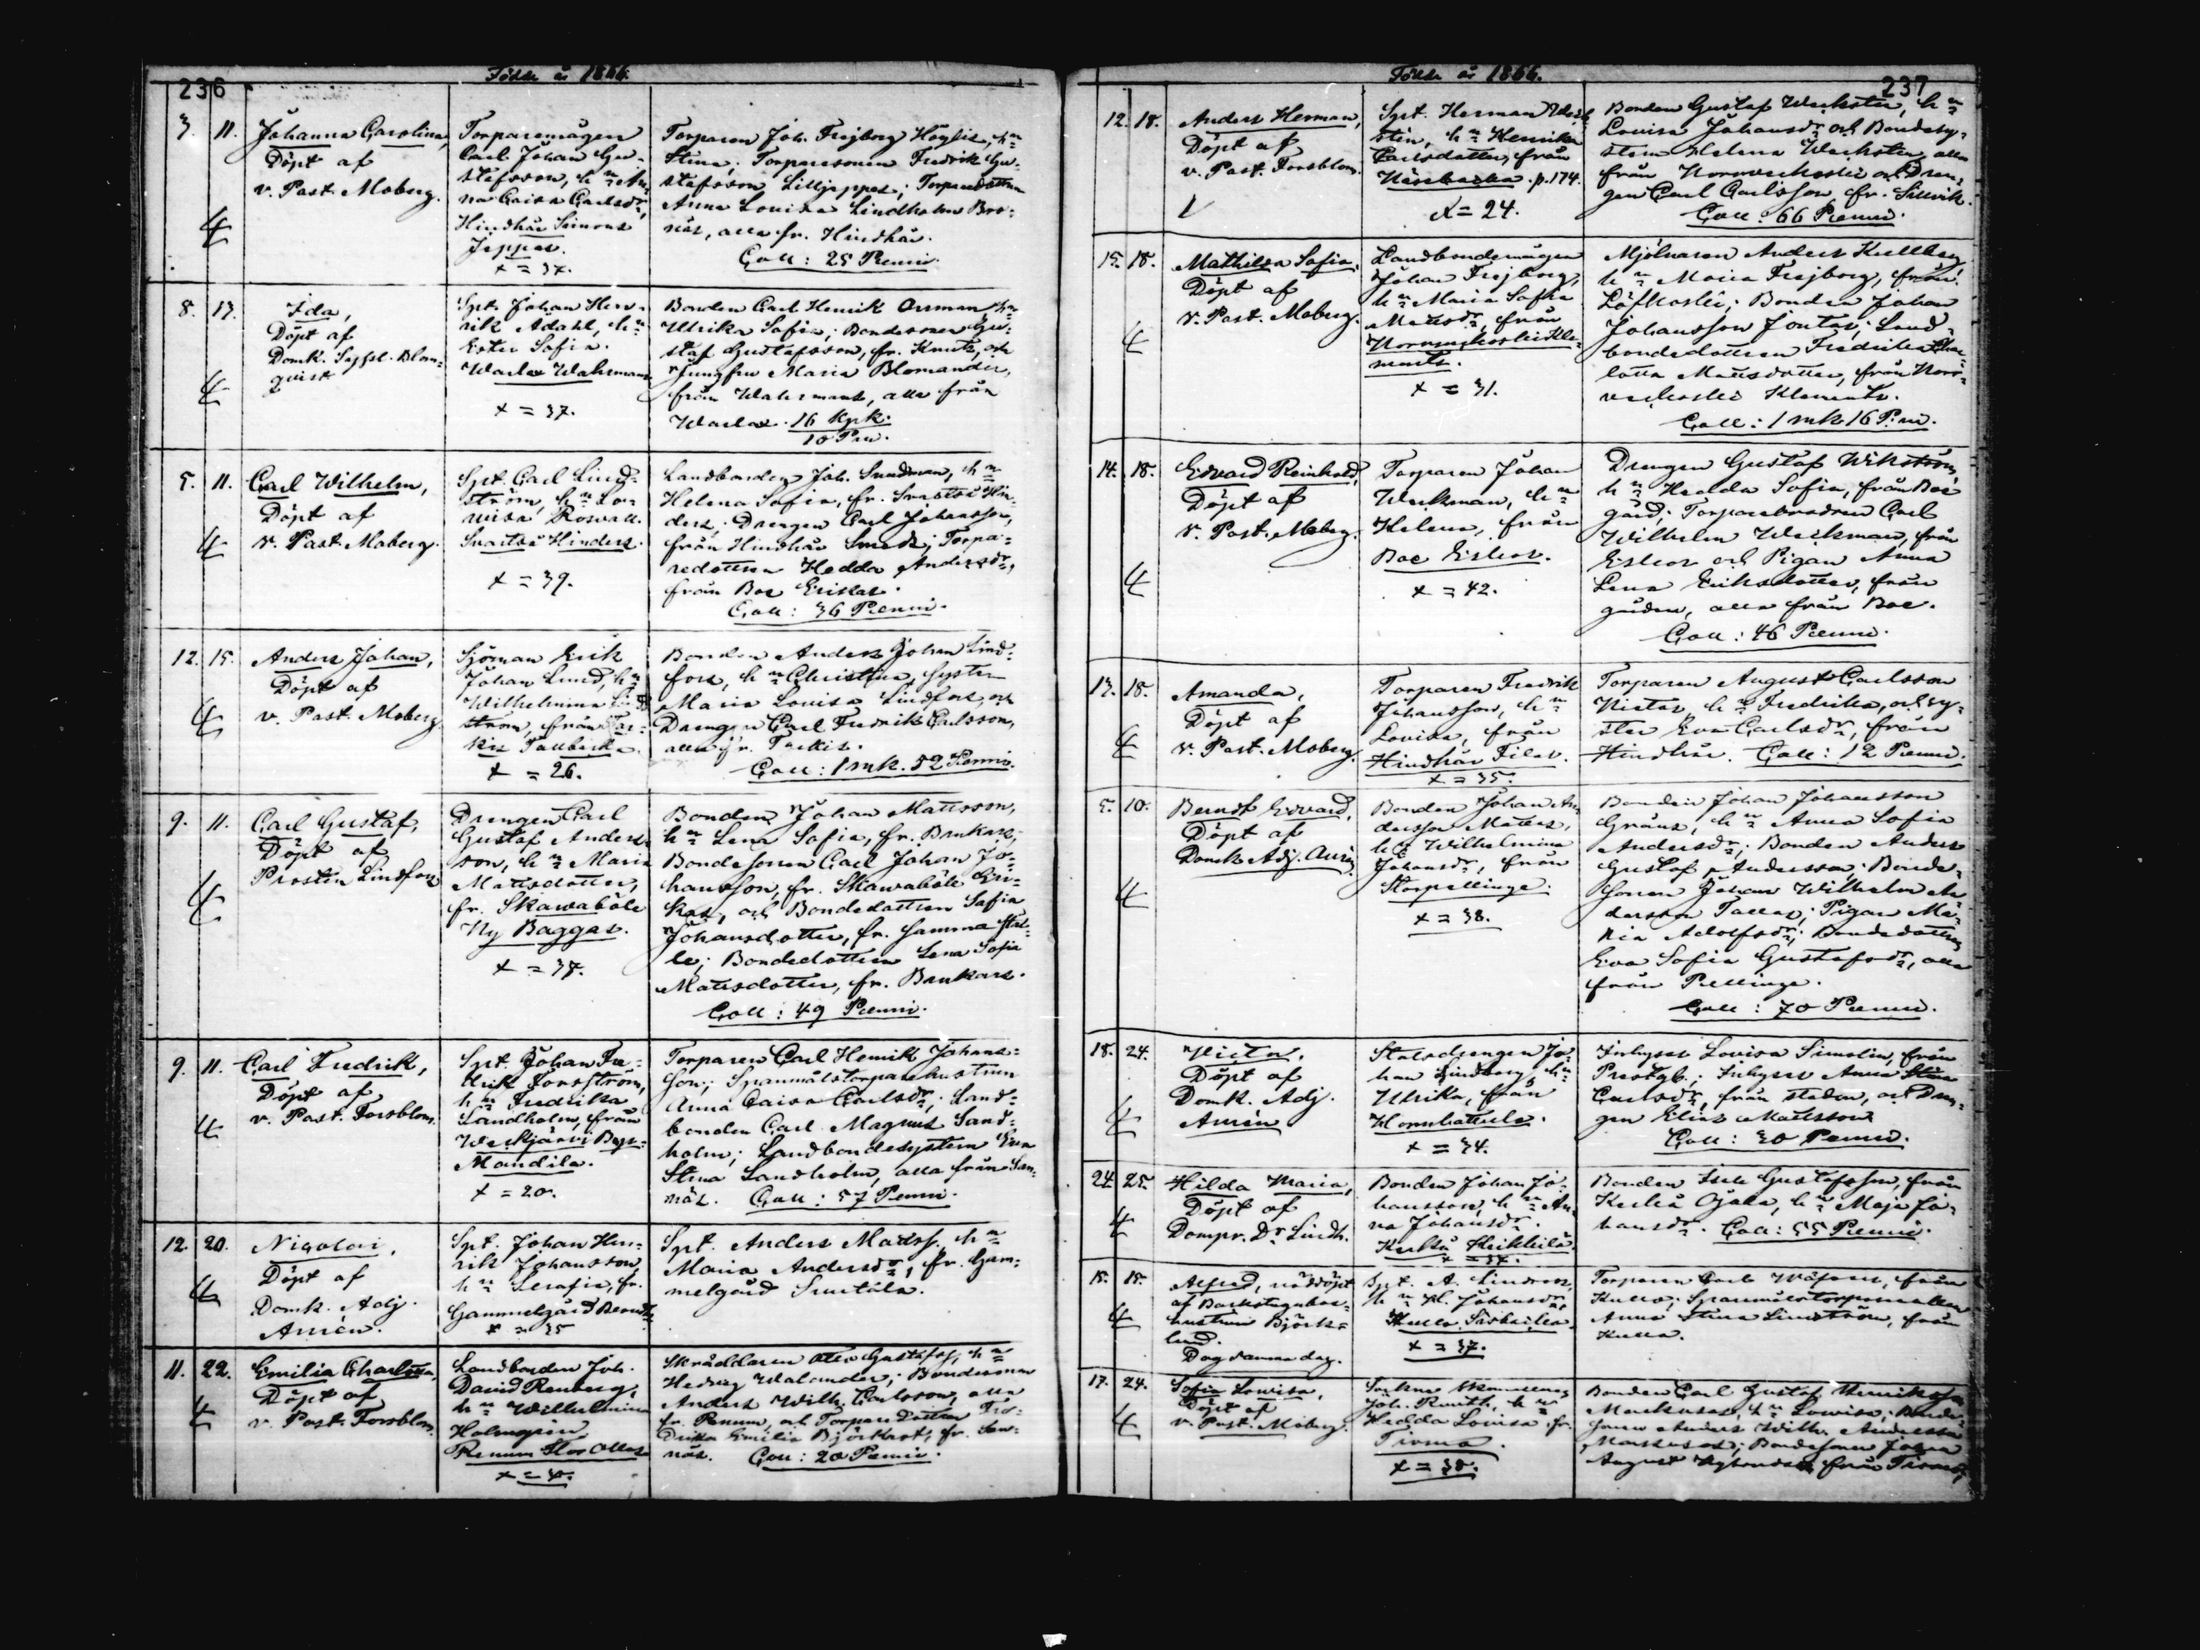 236
Födde år 1866.
3. 11. Johanna Carolina,
Döpt af
v. Past. Moberg.
Torparemågen
Carl Johan Gu-
stafsson, h n An-
na Caisa Carlsdr,
Hindhår Simons
Jeppas.
x = 37.
Torparen Joh. Frejborg Höglis, h n
Stina; Torparesonen Fredrik Gu-
stafsson Lilljeppas; Torparedottren
Anna Lovisa Lindholm Bro-
näs, alla fr. Hindhår.
Coll: 25 Penni.
8. 17. Ida,
Döpt af
Domk. Syssl. Blom-
quist
Spt. Johan Hen-
rik Adahl, h n
Ester Sofia.
Warlax Wahrmans
x = 37.
Bonden Carl Henrik Orrman, h n
Ulrika Sofia; Bondesonen Gu-
staf Gustafsson, fr. Knuts, och
Jungfru Maria Blomander,
från Wahrmans, alla från
Warlax. 16 Kpk.
10 Pen.
5. 11. Carl Wilhelm,
Döpt af
v. Past. Moberg.
Spt. Carl Lind-
ström, h n Lo-
wisa Roswall.
Svartså Hinders.
x = 39.
Landbonden Joh. Sundman, h n
Helena Sofia, fr. Svartså Hin-
ders; Drengen Carl Johansson,
från Hindhår Smeds; Torpa-
redottren Hedda Andersdr,
från Boe Erikas.
Coll: 36 Penni.
12. 15. Anders Johan,
Döpt af
v. Past. Moberg.
Sjöman Erik
Johan Lund, h n
Wilhelmina Lind
ström, från Tar-
kis Tallbacka
x = 26.
Bonden Anders Johan Lind-
fors, h n Christina, syster
Maria Lovisa Lindfors, och
Drengen Carl Fredrik Carlsson,
alla fr. Tarkis.
Coll: 1 mk. 52 Penni.
9. 11. Carl Gustaf,
Döpt af
Prosten Lindfors
Drengen Carl
Gustaf Anders-
son, h n Maria
Mattsdotter,
fr. Skawaböle
Ny Baggas.
x = 37.
Bonden Johan Mattsson,
h n Lena Sofia, fr. Bankars;
Bondesonen Carl Johan Jo-
hansson, fr. Skawaböle Eri-
kas, och Bondedottren Sofia
Johansdotter, fr. samma stäl-
le; Bondedottren Lena Sofia
Mattsdotter, fr. Bankars.
Coll: 49 Penni.
9. 11. Carl Fredrik,
Döpt af
v. Past. Forsblom.
Spt. Johan Fre-
drik Forsström,
h n Fredrika
Sandholm, från
Weckjärvi Bys-
Mandila.
x = 20.
Torparen Carl Henrik Johans-
son; Spanmålstorparehustrun
Anna Caisa Carlsdr; Land-
bonden Carl Magnus Sand-
holm; Landbondesystern Eva
Stina Sandholm, alla från San-
näs. Coll: 57 Penni.
12. 20. Nicolai,
Döpt af
Domk. Adj.
Aurén.
Spt. Johan Hen-
rik Johansson,
h n Serafia, fr.
Gammelgård Berndts
x = 35
Spt. Anders Madss. h n
Maria Andersdr, fr. Gam-
melgård
11. 22. Emilia Charlotta,
Döpt af
v. Past. Forsblom.
Landbonden Joh.
David Renberg,
h n Wilhelmina
Holmgren
Renum Stor Ollas
Skräddaren Otto Gustafss, h n
Hedvig Walander; Bondesonen
Anders Wilh. Carlsson, alla
fr. Renum, och Torparedottren Fre-
drika Emilia Björkqvist, fr. San-
näs. Coll: 20 Penni.
237
Födde år 1866.
12. 18. Anders Herman,
Döpt af
v. Past. Forsblom.
Spt. Herman Weck-
stén, h n Henrika
Carlsdotter, från
p. 174.
x = 24.
Bonden Gustaf Weckstén, h n
Lovisa Johansdr och Bondesy-
stern Helena Weckstén, alla
från Norrveckoski och Dren-
gen Carl Carlsson, fr. Sillvik.
Coll: 66 Penni.
15. 18. Mathilda Sofia,
Döpt af
v. Past. Moberg.
Landbondemågen
Johan Frejborg,
h n Maria Sofia
Mattsdr, från
Norrveckoski Kle-
ments.
x = 31.
Mjölnaren Anders Kullberg
h n Maria Frejborg, från
Löfkoski; Bonden Johan
Johansson Jontas; Land-
bondedottren Fredrika Char-
lotta Mattsdotter, från Norr-
veckoski Klements.
Coll: 1 mk 16 P:ni.
14. 18. Edvard Reinhold,
Döpt af
v. Past. Moberg.
Torparen Johan
Weckman, h n
Helena, från
Boe Eskos.
x = 42.
Drengen Gustaf Wikström,
h n Hedda Sofia, från Boe
gård; Torparebrodren Carl
Wilhelm Weckman, från
Eskos och Pigan Anna
Lena Eriksdotter, från
gården, alla från Boe.
Coll: 46 Penni.
13. 18. Amanda,
Döpt af
v. Past. Moberg.
Torparen Fredrik
Johansson, h n
Lovisa, från
Hindhår Filas.
x = 35.
Torparen August Carlsson
Nietas, h n Fredrika, och sy-
ster Eva Carlsdr, från
Hindhår. Coll: 12 Penni.
5. 10. Berndt Edvard,
Döpt af
Domk. Adj. Aurén
Bonden Johan An-
dersson Mattas,
h n Wilhelmina
Johansdr, från
Storpellinge.
x = 38.
Bonden Johan Johansson
Gräns, h n Anna Sofia
Andersdr; Bonden Anders
Gustaf Andersson; Bonde-
sonen Johan Wilhelm An-
dersson Tallas; Pigan Ma-
ria Adolfsdr; Bondedottren
Eva Sofia Gustafsdr, alla
från Pellinge.
Coll: 70 Penni.
18. 24. Victor,
Döpt af
Domk. Adj.
Aurén
Statsdrengen Jo-
han Lindberg, h n
Ulrika, från
Hornhattula.
x = 34.
Inhyses Lovisa Simolin, från
Prestgb.; Inhyses Anna Stina
Carlsdr, från staden, och Dren-
gen Elias Mattsson
Coll: 30 Penni.
24. 25. Hilda Maria,
Döpt af
Dompr. Dr Lindh.
Bonden Johan Jo-
hansson, h n An-
na Johansdr.
Kerko Heikkilä.
x = 37.
Bonden Isak Gustafsson, från
Kerko Ojala, h n Maja Jo-
hansdr. Coll: 55 Penni.
15. 15. Alfred, nöddöpt
af Backstugubos-
hustrun Björk-
lund.
Dog samma dag.
Spt. A. Lindroos,
Johansdr,
x = 37.
Torparen Carl från
Kullo; Spanmålstorparenkan
Anna Stina Lindström, från
Kullo.
17. 24. Sofia Lovisa,
Döpt af
v. Past. Moberg.
Joh. h n
Hedda Lovisa fr.
Tirmo.
x = 38.
Bonden Carl Gustaf Henriksson
Markusas, h n Lowisa; Bonde-
sonen Anders Wilh. Andersson
Markusas; Bondesonen Johan
August från Tirmo.